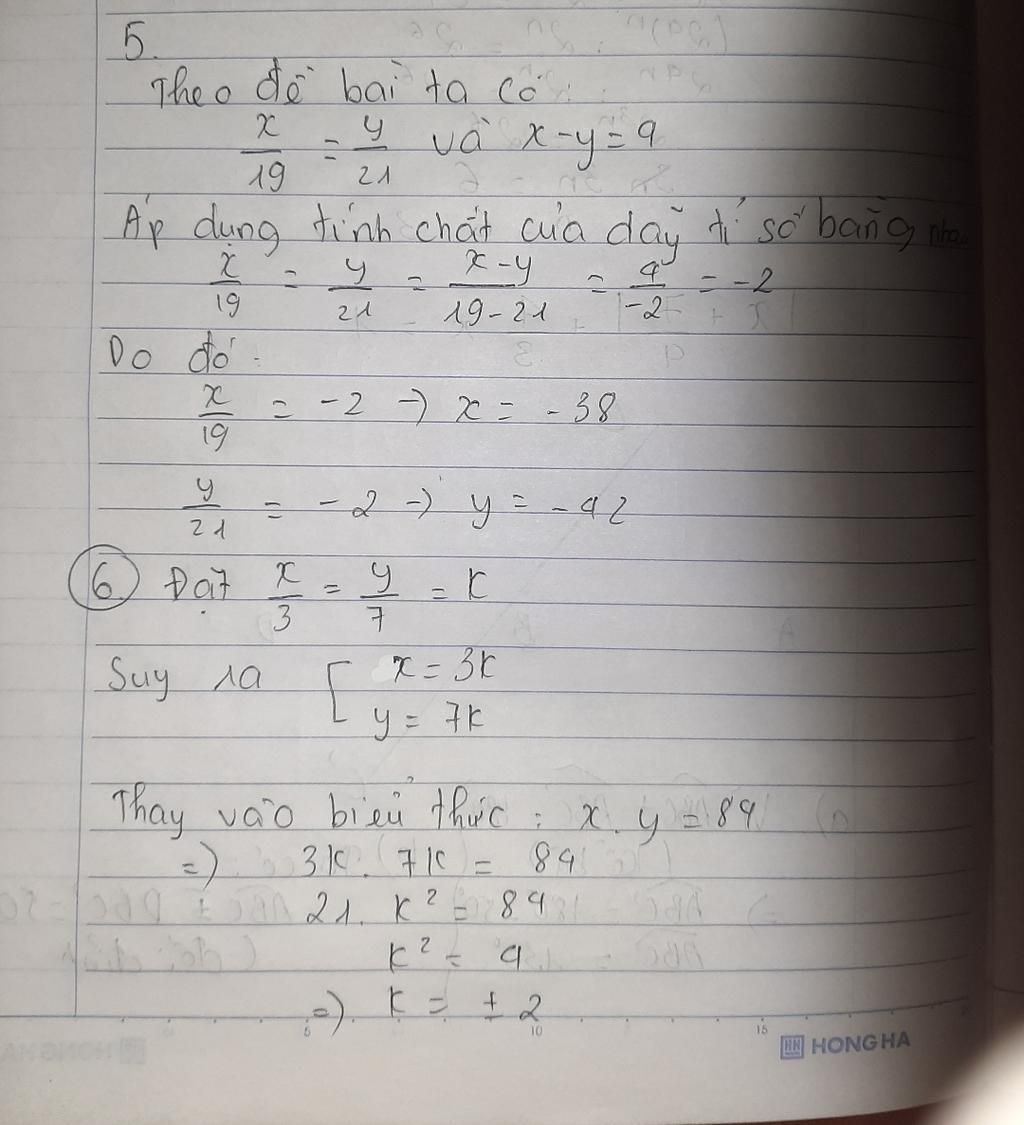 5.
Theo đề bài ta có:
x/19 = y/21 và x-y=4
Áp dụng tính chất của dãy tỉ số bằng nhau
x/19 = y/21 = x-y/19-21 = 4/-2 = -2
Do đó:
x/19 = -2 → x = -38
y/21 = -2 → y = -42
6 Đặt x/3 = y/7 = k
Suy ra [ x = 3k
y = 7k
Thay vào biểu thức: x.y = 84
=) 3k.7k = 84
21.k² = 84
k² = 4
=) k = ±2
5 10 15
HONG HA